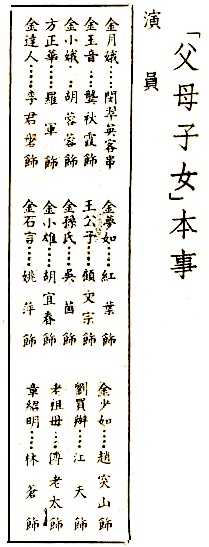 「父母子女」本事
演員
金月娥……閔翠英客串
金玉音……龔秋霞飾
金小娥……胡蓉蓉飾
方正華……羅軍飾
金達人……李君磐飾
金夢如……紅葉飾
王公子……顧文宗飾
金孫氏……吳茵飾
金小雄……胡宜春飾
金石言……姚萍飾
金少如……趙突山飾
劉買辦……江天飾
老祖母……傅老太飾
章紹明……林蒼飾